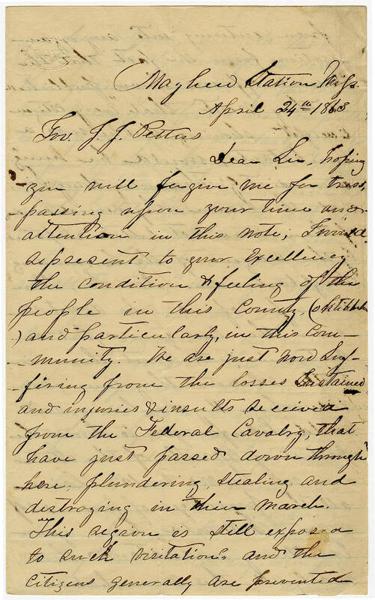 Mayhew Station Miss.
April 24th 1863
Gov J J Pettus
Dear Sir, hoping
you will forgive me for tress-
passing upon your time and
attention in this note, I would
represent to your Excellency
the condition & feeling of the
people in this County, (Oktibbeha
) and particularly, in this Com-
-munity. We are just now suf-
-fering from the losses sustained
and injuries & insults received
from the Federal Cavalry, that
have just passed down through
here, plundering, stealing and
destroying in their march.
This region is still exposed
to such visitations and the
Citizens generally are prevented